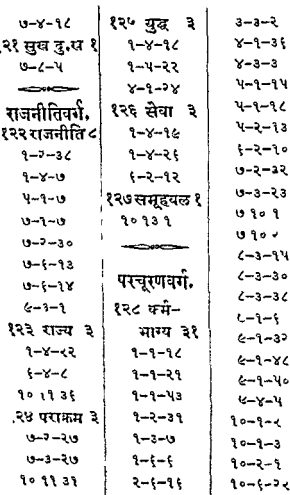 ७-४-१८
१२१ सुख दुःख १
७-८-५
राजनीतिवर्ग.
१२२ राजनीति ८
१-२-३८
१-४-७
५-१-७
७-१-७
७-२-३०
७-६-१३
७-६-१४
९-३-१
१२३ राज्य ३
१-४-१२
६-४-८
१० ११ ३६
१२४ पराक्रम ३
७-२-२७
७-३-२७
१० ११ ३१
१२५ युद्ध ३
१-४-१८
१-५-२२
४-१-२४
१२६ सेवा ३
१-४-१९
१-४-२६
६-२-१२
१२७ समूहबल १
१० १३ १
परचूरणवर्ग.
१२८ कर्म-
भाग्य ३१
१-१-१८
१-१-२१
१-१-५३
१-२-३१
१-३-७
१-६-६
२-६-१६
३-३-२
४-१-३६
४-३-३
५-१-१५
५-१-१८
५-२-१३
६-२-१०
७-२-३२
७-३-२३
७ १० १
७ १०
८-३-१५
८-३-३०
८-३-३८
९-१-६
९-१-३२
९-१-४८
९-१-५०
९-४-५
१०-१-२
१०-१-३
१०-२-१
१०-६-२२